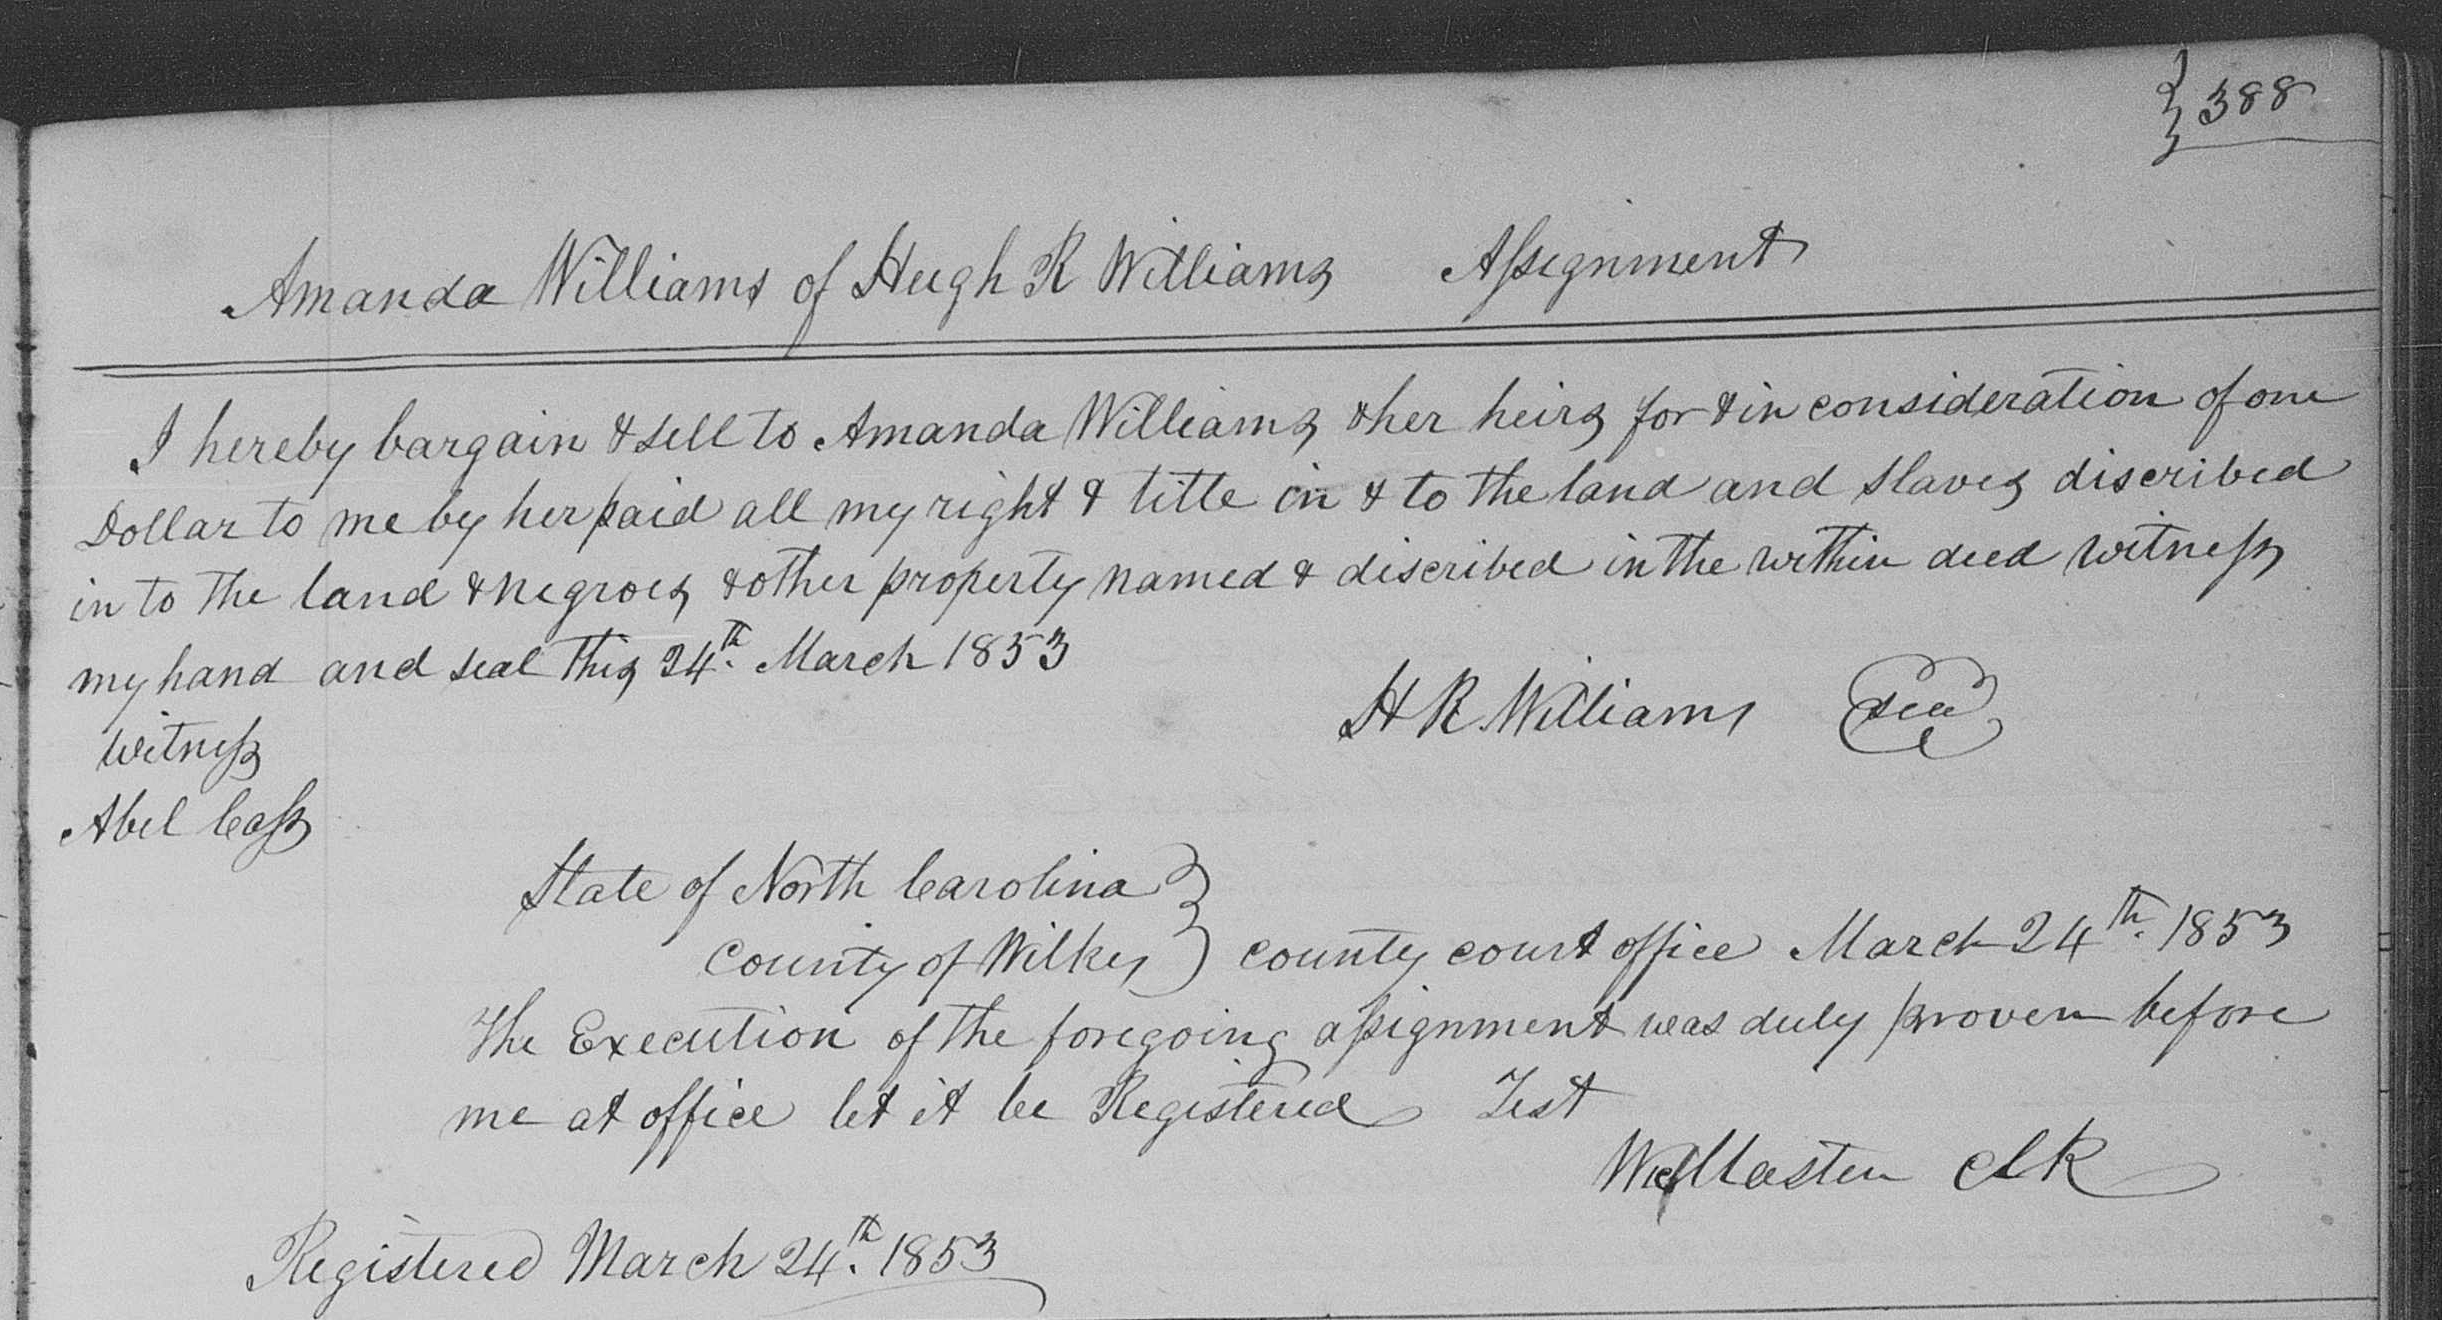 388
Amanda Williams of Hugh R Williams Assignment
I hereby bargain & sell to Amanda Williams & her heirs for & in consideration of one
Dollar to me by her paid all my right & title in & to the land and slaves discribed
in to the land & negroes & other property named & discribed in the within deed witness
my hand and seal this 24th. March 1853
H R Williams Seal
witness
Abel Cass
State of North Carolina
County of Wilkes County court office March 24th. 1853
The Execution of the foregoing assignment was duly proven before
me at office let it be Registered Test
Masten Clk
Registered March 24th. 1853